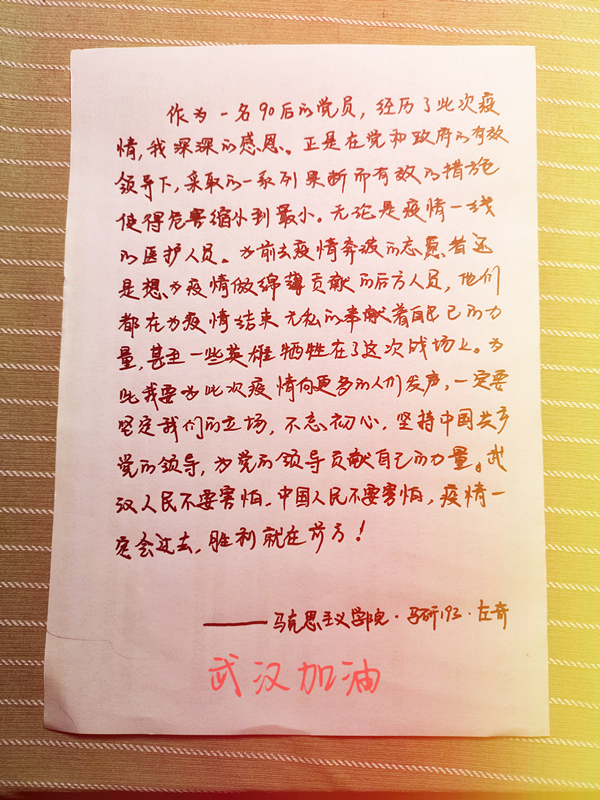 作为一名90后的党员，经历了此次疫
情，我深深的感恩。正是在党和政府的有效
领导下，采取的一系列果断而有效的措施
使得危害缩小到最小。无论是疫情一线
的医护人员。为前去疫情奔波的志愿者还
是想为疫情做绵薄贡献的后方人员，他们
都在为疫情结束无私的奉献着自己的力
量，甚至一些英雄牺牲在了这次战场上。为
此我要为此次疫情向更多的人们发声，一定要
坚定我们的立场，不忘初心，坚持中国共产
党的领导，为党的领导贡献自己的力量。武
汉人民不要害怕，中国人民不要害怕，疫情一
定会过去，胜利就在前方！
——马克思主义学院·马研193·左奇
武汉加油